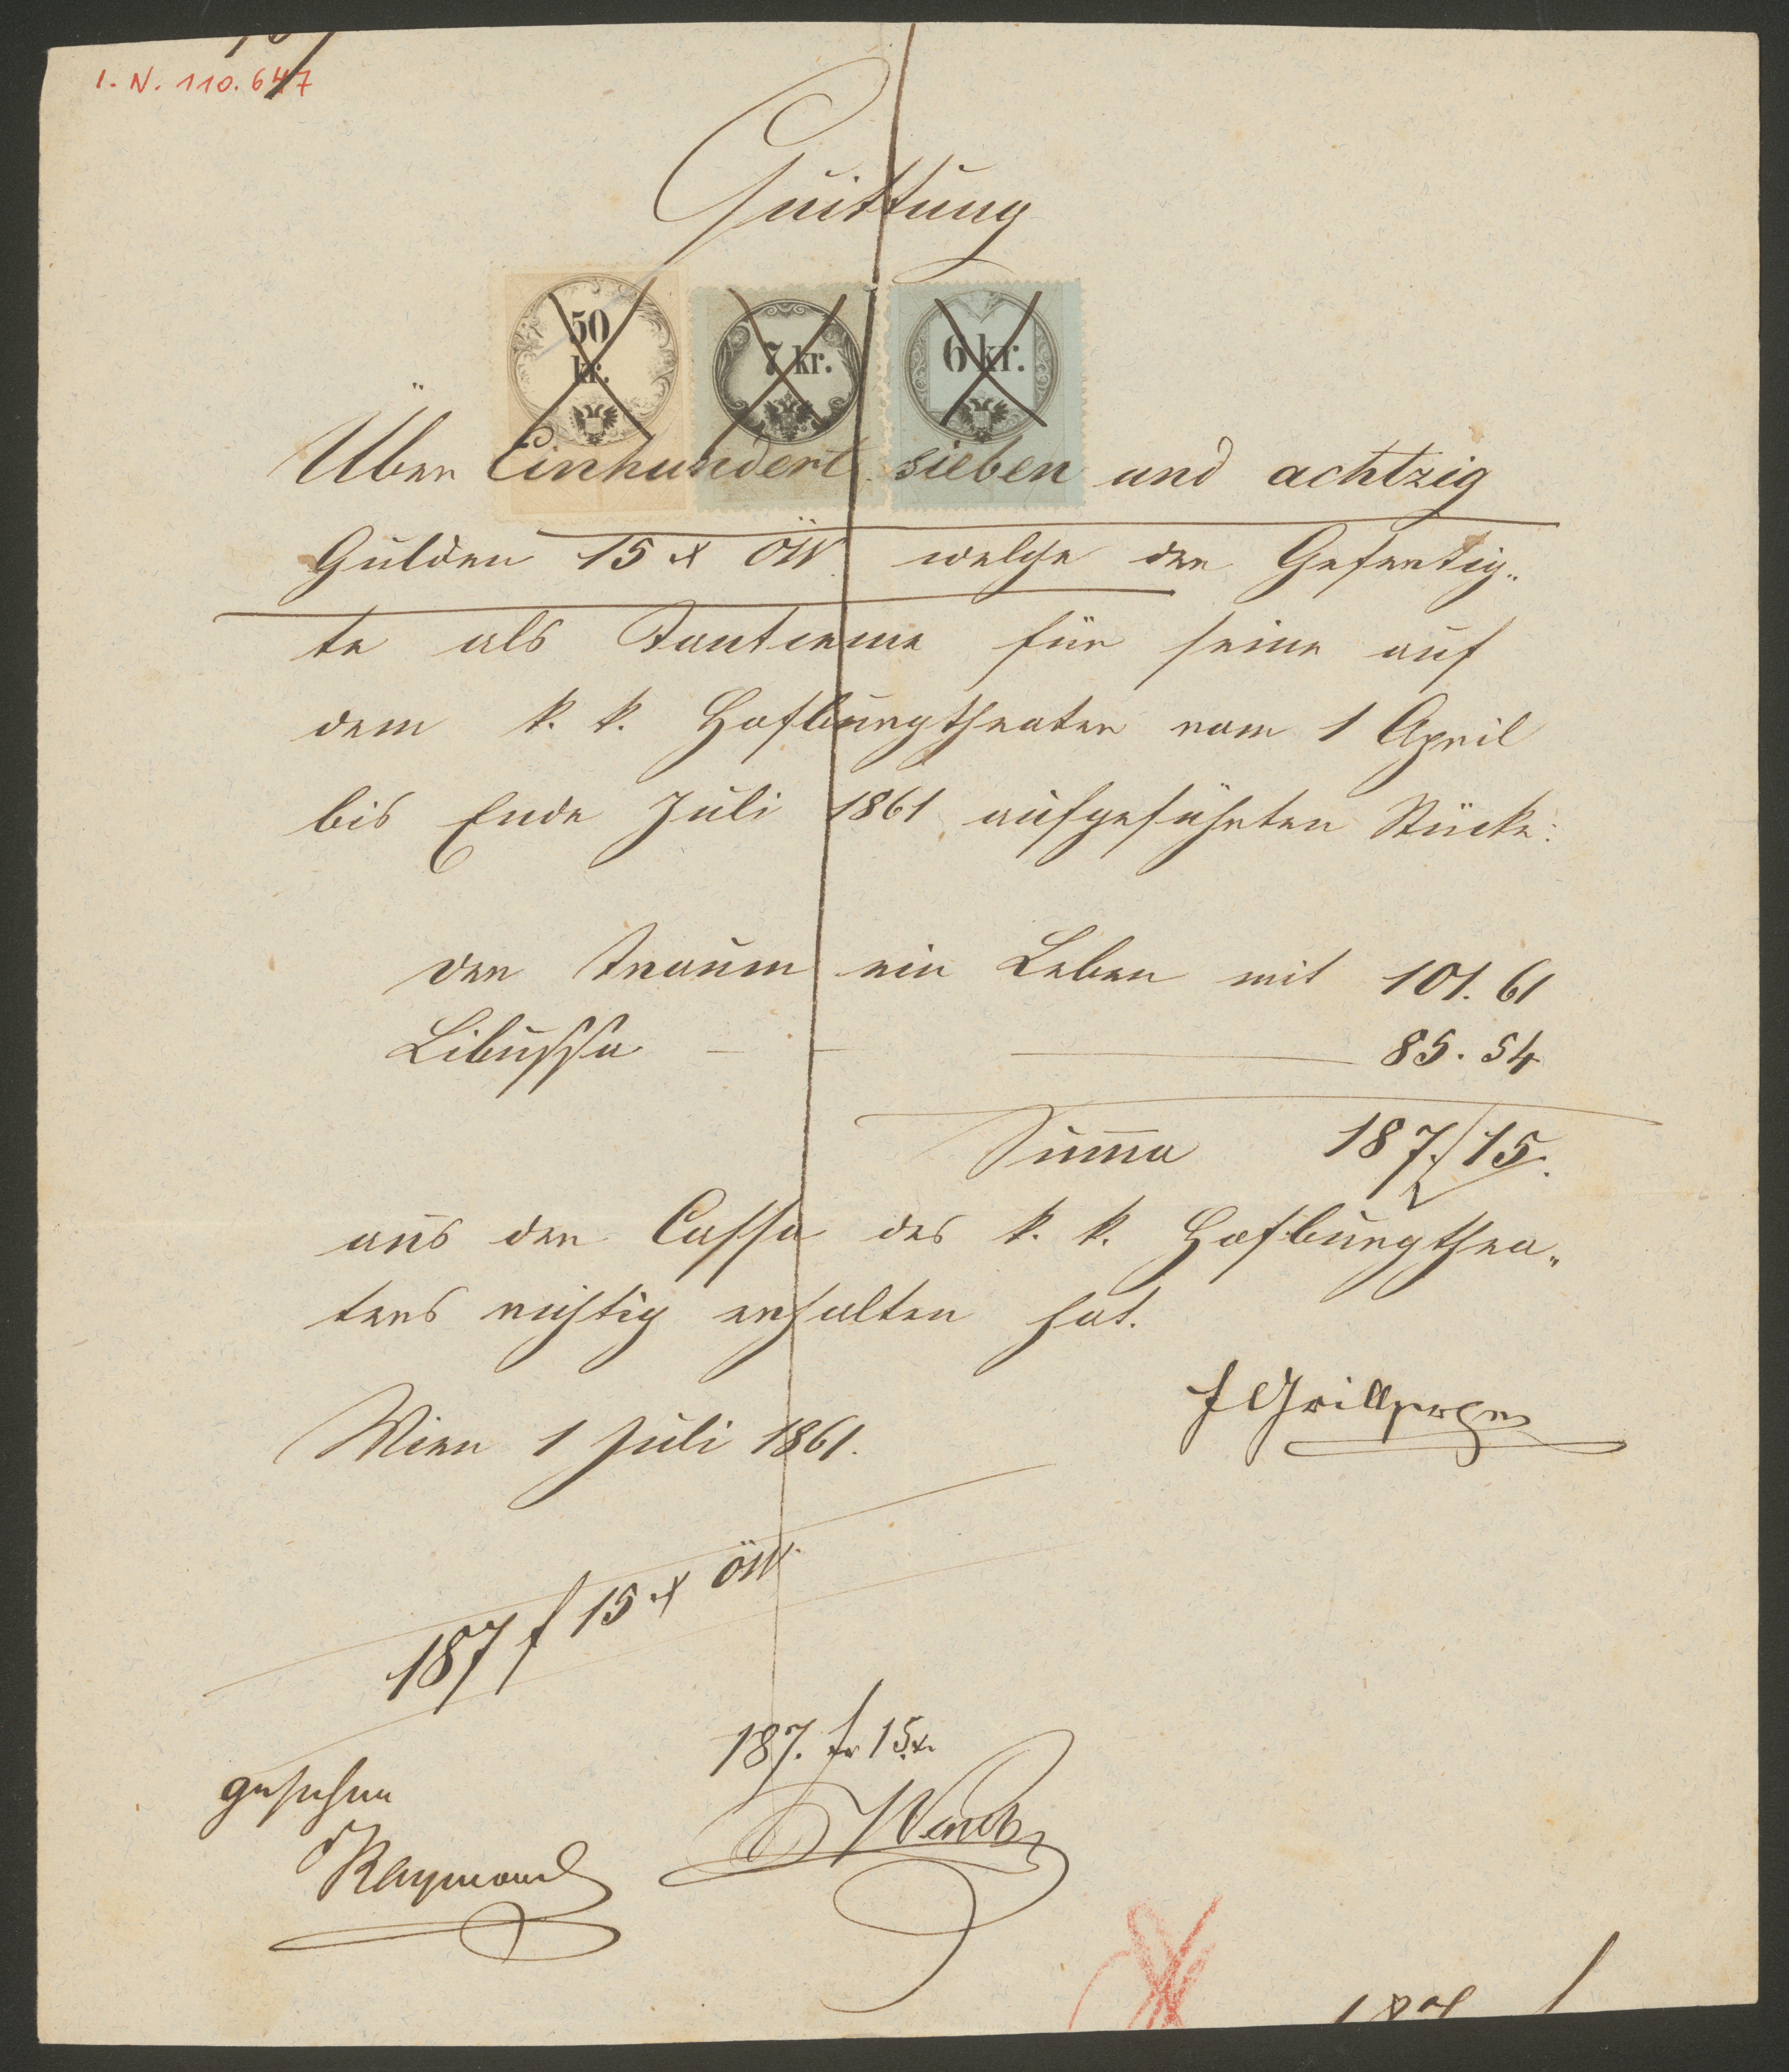 I. N. 110.647
Quittung
50
kr.
7 kr.
6 kr.
Über Einhundert sieben und achtzig
Gulden 15 x ÖW. welche der Gefertig„
te als Tantieme für seine auf
dem k. k. Hofburgtheater vom 1 April
bis Ende Juli 1861 aufgeführten Stücke:
der Traum ein Leben mit 101. 61
Libussa — — — 85. 54
Summa 187. 15.
aus der Cassa des k. k. Hofburgthea„
ters richtig erhalten hat.
F Grillparzer
Wien 1 Juli 1861.
187 f 15 x ÖW.
187. f 15 x.
gesehen
Raymond